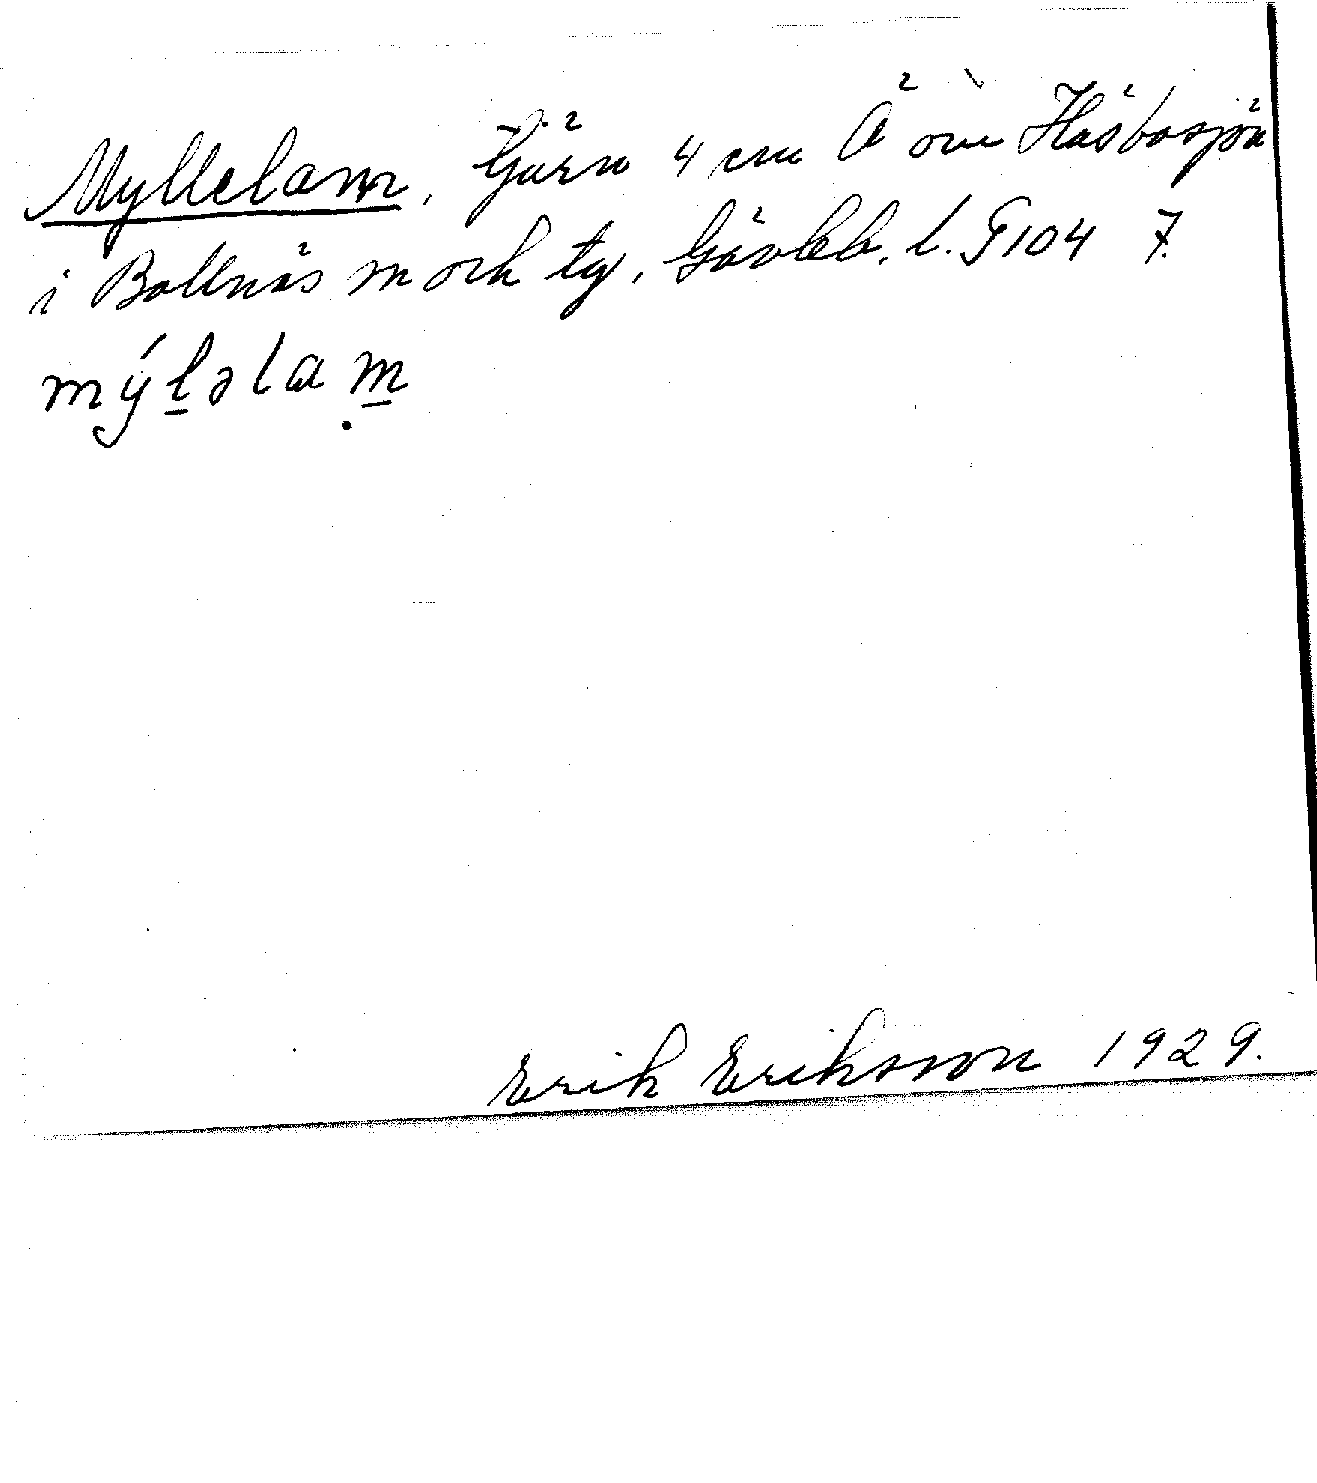 Myllelam, Tjärn 4 cm Ö om Häsbosjön
i Bollnäs sn och tg, Gävleb. l. G104 7.
mýləlam
Erik Eriksson 1929.